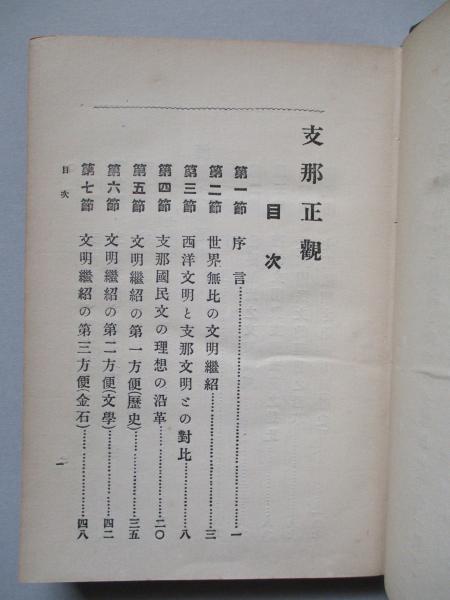 支那正觀
目次
第一節 序言……………………一
第二節 世界無比の文明繼紹……………………三
第三節 西洋文明と支那文明との對比……………………八
第四節 支那國民文の理想の沿革……………………二〇
第五節 文明繼紹の第一方便(歷史)……………………三五
第六節 文明繼紹の第二方便(文學)……………………四二
第七節 文明繼紹の第三方便(金石)……………………四八
目次
一